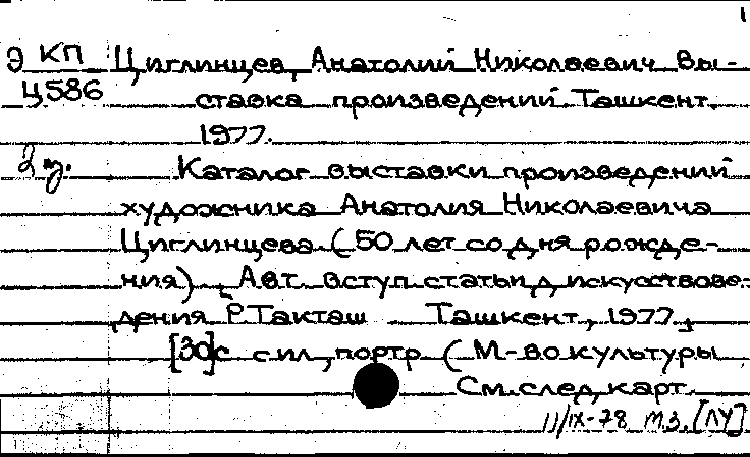 1
Э КП Циглинцев, Анатолий Николаевич Вы-
Ц586 ставка произведений. Ташкент.
1977.
2 э. Каталог выставки произведений
художника Анатолия Николаевича
Циглинцева. (50 лет со дня рожде-
ния). Авт. вступ. статьи д. искусствове-
дения Р. Такташ. Ташкент, 1977.
[30]с с ил., портр. (М-во культуры
См. след. карт.
11/IX-78 М.З. [ЛУ]